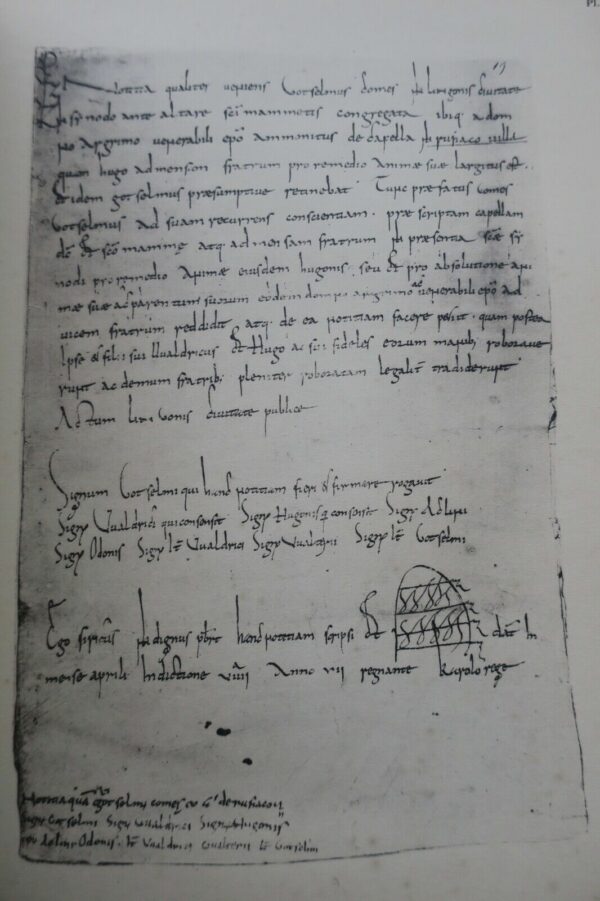 Pl.
Notitia qualiter veniens Gotselmus comes in lingonis civitate
in synodo ante altare sci mammetis congregata ibiq a dom
no Argrimo venerabili epo ammonitus de capella in rufiaco villa
quam hugo ad mensam fratrum pro remedio animae suae largitus est
Et idem gotselmus praesumptive retinebat Tunc praefatus comes
Gotselmus ad suam recurrens conscientiam praescriptam capellam
do Et sco mamme atq ad mensam fratrum in praesentia scae sy
nodi pro remedio Animae eiusdem hugonis seu Et pro absolutione ani
mae suae ac parentum suorum eodem domno argrimo venerabili epo ad
vicem fratrum reddidit atq de ea notitiam facere petiit quam postea
ipse et filii sui Uualdricus Et Hugo ac sui fideles eorum manib roborave
runt ac demum fratrib pleniter roboratam legalit tradiderunt
Actum lingonis civitate publice
Signum Gotselmi qui hanc notitiam fieri et firmare rogavit
Sign Uualdrici qui consensit Sign Hugonis q consensit Sign
Sign Odonis Sign It Uualdrici Sign Uualterii Sign It Gotselmi
Ego indignus pbr hanc notitiam scripsi Et dat In
mense aprili Indictione viiii Anno vii regnante Karolo rege
Notitia gotselmus comes de rufiaco
Sign Gotselmi Sign Uualdrici Sign Hugonis
Odonis It Uualdrici Gualterii It Gotselmi